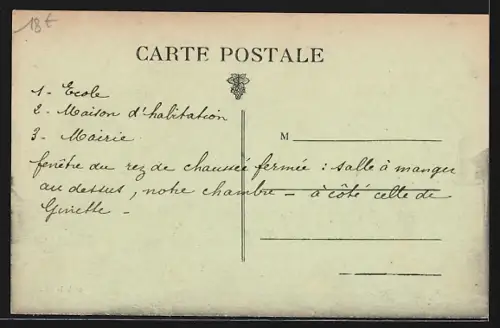 18€
CARTE POSTALE
1 - Ecole
2 - Maison d'habitation
3 - Mairie
M
fenêtre du rez de chaussée fermée : salle à manger
au dessus, notre chambre - à côté celle de
Ginette -